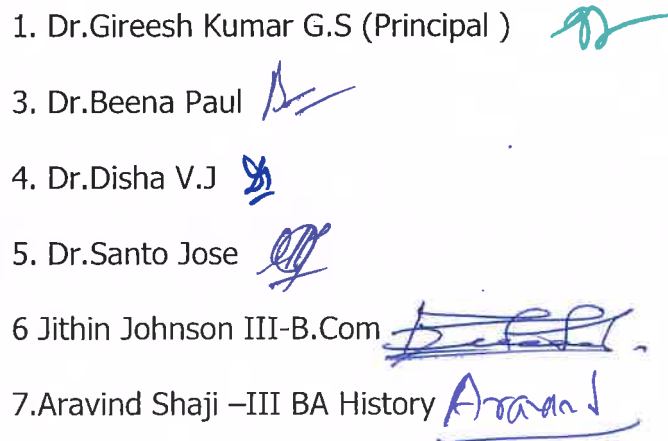 1. Dr.Gireesh Kumar G.S (Principal )
3. Dr.Beena Paul
4. Dr.Disha V.J
5. Dr.Santo Jose
6 Jithin Johnson III-B.Com
7.Aravind Shaji –III BA History Aravind